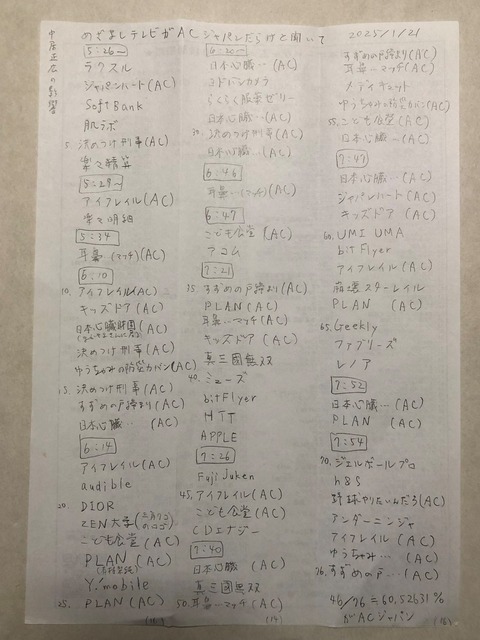 中居正広の影響
めざましテレビがACジャパンだらけと聞いて
2025/1/21
5:26〜
ラクスル
ジャパンハート(AC)
SoftBank
肌ラボ
5. 決めつけ刑事(AC)
楽々精算
5:29〜
アイフレイル(AC)
楽々明細
5:34
耳鼻…(マッチ)(AC)
6:10
10. アイフレイル(AC)
キッズドア(AC)
日本心臓財団(AC)
決めつけ刑事(AC)
ゆうちゃみの防災カバン(AC)
15. 決めつけ刑事(AC)
すずめの戸締まり(AC)
日本心臓…(AC)
6:14
アイフレイル(AC)
audible
20. DIOR
ZEN大学(
こども食堂(AC)
PLAN(AC)
Y!mobile
25. PLAN(AC)
日本心臓…(AC)
ヨドバシカメラ
らくらく服薬ゼリー
日本心臓…(AC)
30. 決めつけ刑事(AC)
日本心臓…(AC)
6:46
耳鼻…(マッチ)(AC)
6:47
こども食堂(AC)
アコム
7:21
35. すずめの戸締まり(AC)
PLAN(AC)
耳鼻…マッチ(AC)
キッズドア(AC)
真三國無双
40. ミューズ
bitFlyer
NTT
APPLE
7:26
Fuji Juken
45. アイフレイル(AC)
こども食堂(AC)
CDエナジー
7:40
日本心臓(AC)
真三國無双
50. 耳鼻…マッチ(AC)
(14)
すずめの戸締まり(AC)
耳鼻…マッチ(AC)
メディキット
ゆうちゃみの防災カバン(AC)
55. こども食堂(AC)
日本心臓…(AC)
7:47
日本心臓…(AC)
ジャパンハート(AC)
キッズドア(AC)
60. UMI UMA
bitFlyer
アイフレイル(AC)
崩壊スターレイル
PLAN(AC)
65. Geekly
ファブリーズ
レノア
7:52
日本心臓…(AC)
PLAN(AC)
7:54
70. ジェルボールプロ
h&s
野球やりたいんだろ(AC)
アンダーニンジャ
アイフレイル(AC)
ゆうちゃみ…(AC)
76. すずめの戸…(AC)
46/76≒60,52631%
がACジャパン
(16)